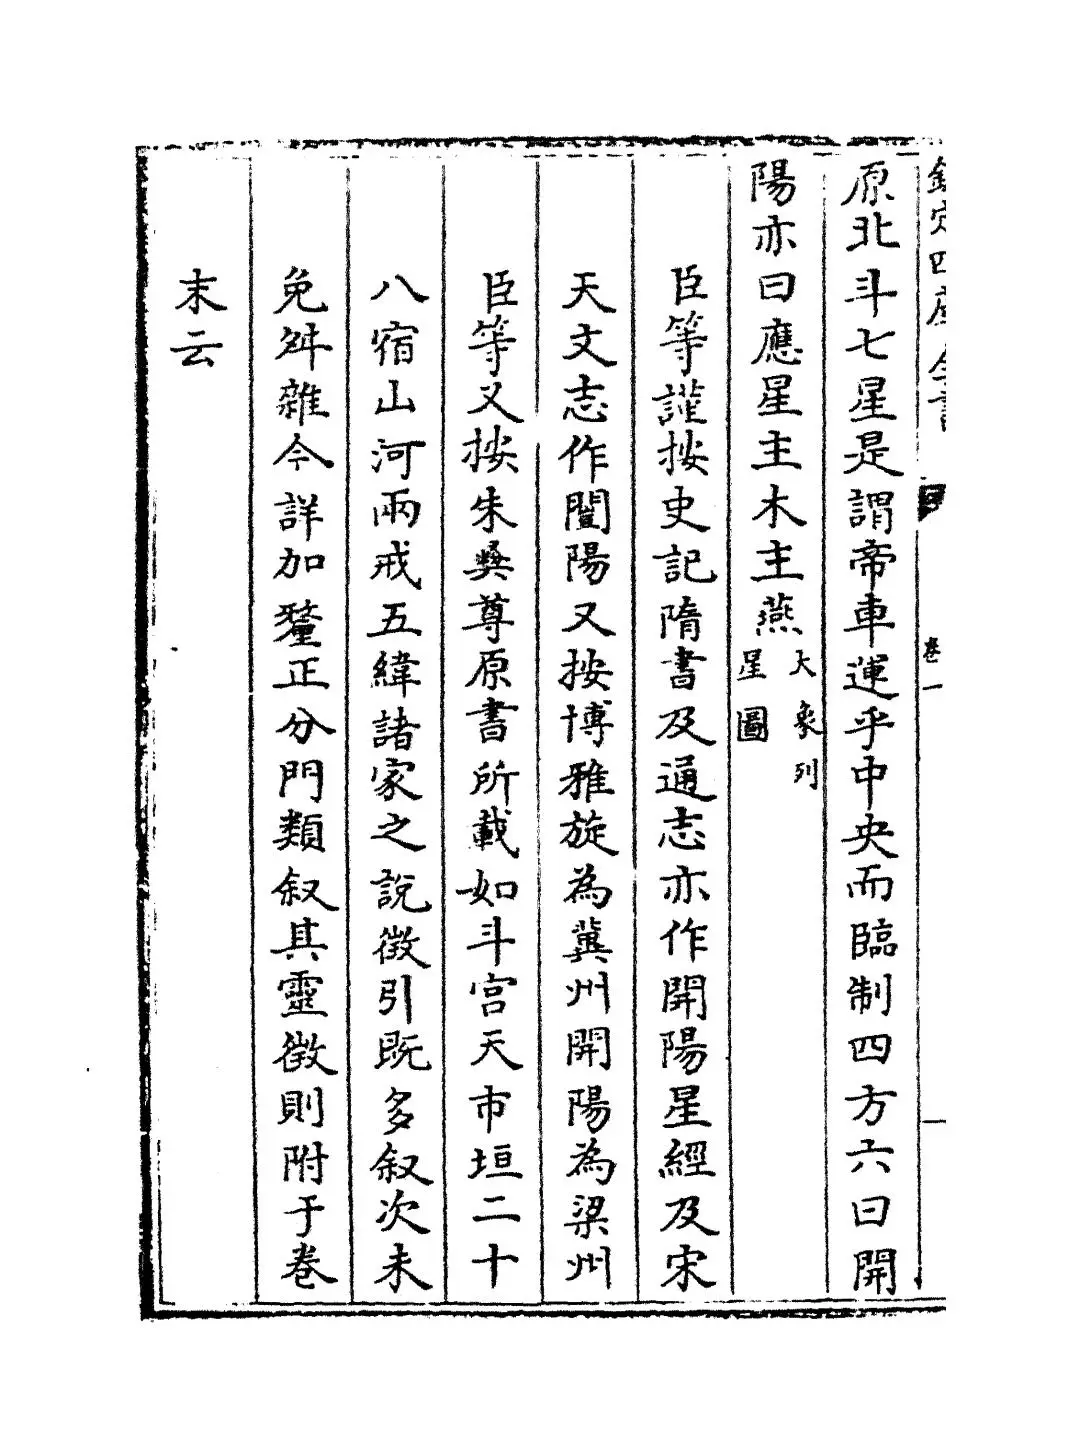 欽定四庫全書
卷一
原北斗七星是謂帝車運乎中央而臨制四方六曰開
陽亦曰應星主木主燕大象列星圖
臣等謹按史記隋書及通志亦作開陽星經及宋
天文志作闓陽又按博雅旋為冀州開陽為梁州
臣等又按朱奠尊原書所載如斗宫天市垣二十
八宿山河兩戒五緯諸家之說徵引既多叙次未
免舛雜今詳加釐正分門類叙其靈徵則附于卷
末云